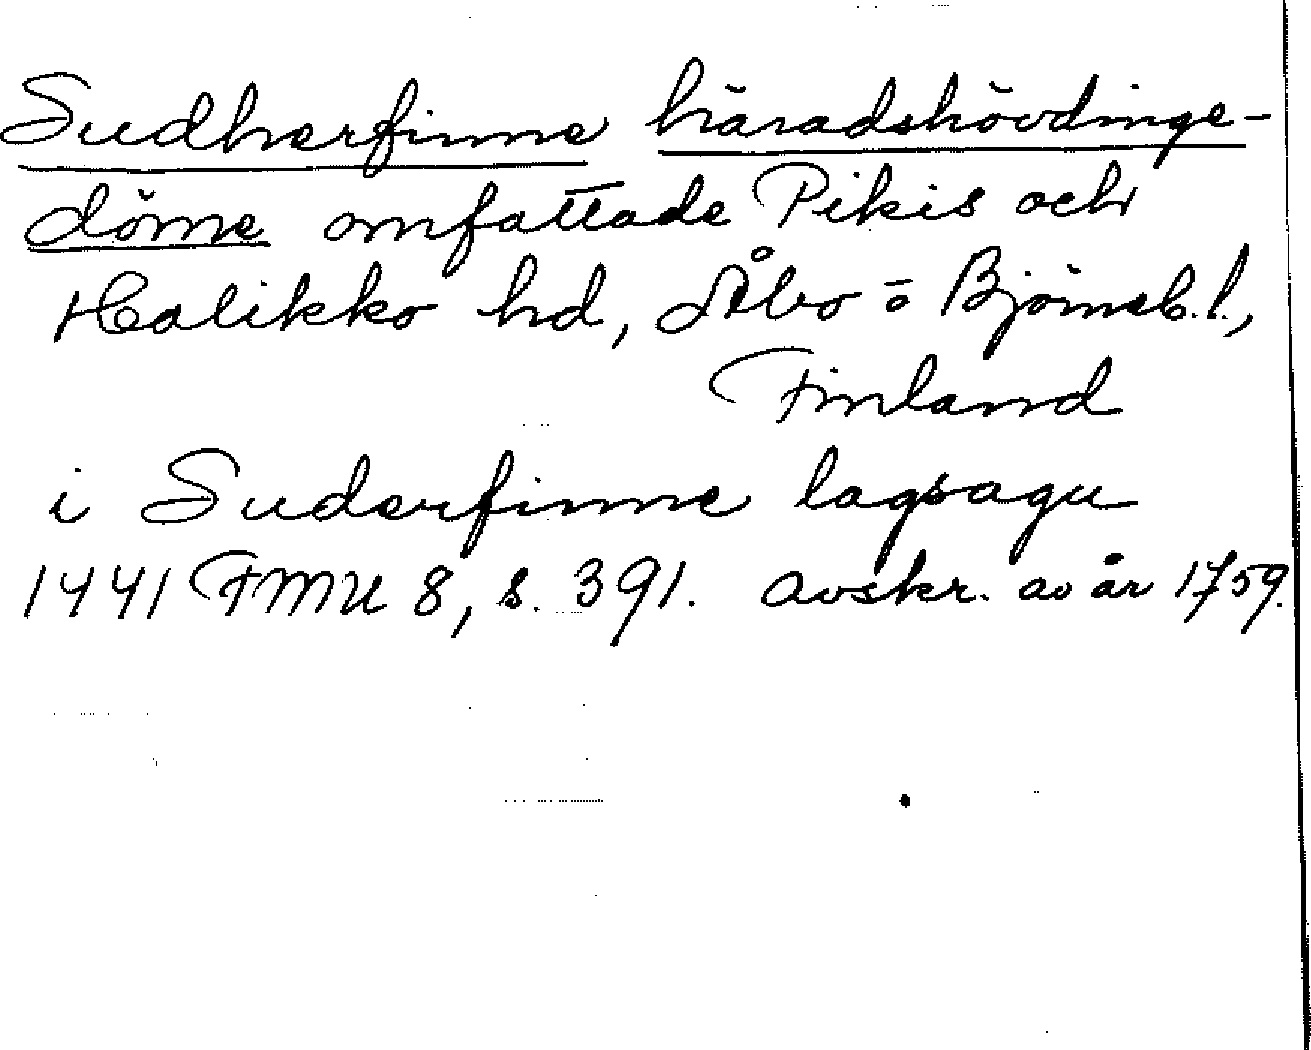 Sudherfinne häradshövdinge-
döme omfattade Pikis och
Halikko hd, Åbo o Björneb. l.,
Finland
i Suderfinne lagsagu
1441 FMU 8, s. 391. Avskr. av år 1759.